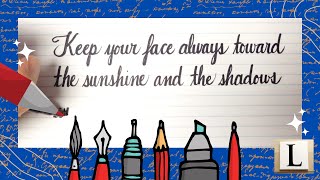 Keep your face always toward
the sunshine and the shadows
L